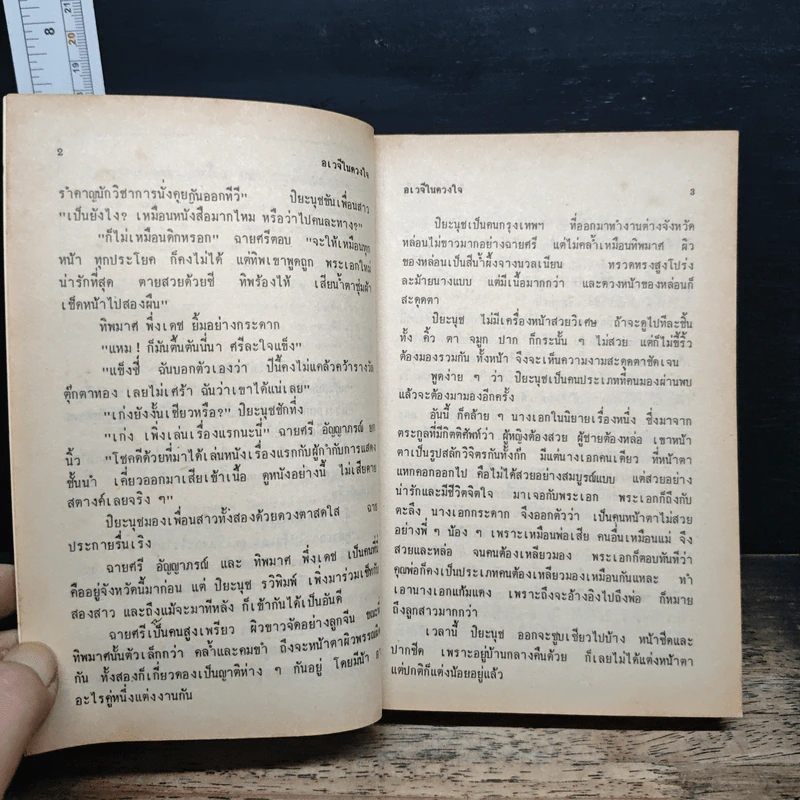 8
21
20
2
อเวจีในดวงใจ
รำคาญนักวิชาการนั่งคุยกันออกทีวี" ปิยะนุชขันเพื่อนสาว
"เป็นยังไง? เหมือนหนังสือมากไหม หรือว่าไปคนละทาง?"
"ก็ไม่เหมือนดิกหรอก" ฉายศรีตอบ "จะให้เหมือนทุก
หน้า ทุกประโยค ก็คงไม่ได้ แต่ทิพเขาพูดถูก พระเอกใหม่
น่ารักที่สุด ตายสวยด้วยซี ทิพร้องไห้ เสียน้ำตาชุ่มผ้า
เช็ดหน้าไปสองผืน"
ทิพมาศ พึ่งเดช ยิ้มอย่างกระดาก
"แหม! ก็มันตื้นตันนี่นา ศรีละใจแข็ง"
"แข็งซี่ ฉันบอกตัวเองว่า ปีนี้คงไม่แคล้วคว้ารางวัล
ตุ๊กตาทอง เลยไม่เศร้า ฉันว่าเขาได้แน่เลย"
"เก่งยังงั้นเชียวหรือ?" ปิยะนุชซักทึ่ง
"เก่ง เพิ่งเล่นเรื่องแรกนะนี่" ฉายศรี อัญญาภรณ์ ยก
นิ้ว "โชคดีด้วยที่มาได้เล่นหนังเรื่องแรกกับผู้กำกับการแสดง
ชั้นนำ เคี่ยวออกมาเสียเข้าเนื้อ ดูหนังอย่างนี้ ไม่เสียดาย
สตางค์เลยจริง ๆ"
ปิยะนุชมองเพื่อนสาวทั้งสองด้วยดวงตาสดใส ฉาย
ประกายรื่นเริง
ฉายศรี อัญญาภรณ์ และ ทิพมาศ พึ่งเดช เป็นคนที่นี่
คืออยู่จังหวัดนี้มาก่อน แต่ ปิยะนุช รวิพิมพ์ เพิ่งมาร่วมเช็ทกับ
สองสาว และถึงแม้จะมาทีหลัง ก็เข้ากันได้เป็นอันดี
ฉายศรีเป็นคนสูงเพรียว ผิวขาวจัดอย่างลูกจีน ขณะที่
ทิพมาศนั้นตัวเล็กกว่า คล้ำและคมขำ ถึงจะหน้าตาผิวพรรณผิด
กัน ทั้งสองก็เกี่ยวดองเป็นญาติห่าง ๆ กันอยู่ โดยมีน้า อา
อะไรคู่หนึ่งแต่งงานกัน
อเวจีในดวงใจ
3
ปิยะนุชเป็นคนกรุงเทพฯ ที่ออกมาทำงานต่างจังหวัด
หล่อนไม่ขาวมากอย่างฉายศรี แต่ไม่คล้ำเหมือนทิพมาศ ผิว
ของหล่อนเป็นสีน้ำผึ้งจางนวลเนียน ทรวดทรงสูงโปร่ง
ละม้ายนางแบบ แต่มีเนื้อมากกว่า และดวงหน้าของหล่อนก็
สะดุดตา
ปิยะนุช ไม่มีเครื่องหน้าสวยวิเศษ ถ้าจะดูไปทีละชิ้น
ทั้ง คิ้ว ตา จมูก ปาก ก็กระนั้น ๆ ไม่สวย แต่ก็ไม่ขี้ริ้ว
ต้องมองรวมกัน ทั้งหน้า จึงจะเห็นความงามสะดุดตาชัดเจน
พูดง่าย ๆ ว่า ปิยะนุชเป็นคนประเภทที่คนมองผ่านพบ
แล้วจะต้องมามองอีกครั้ง
อันนี้ ก็คล้าย ๆ นางเอกในนิยายเรื่องหนึ่ง ซึ่งมาจาก
ตระกูลที่มีกิตติศัพท์ว่า ผู้หญิงต้องสวย ผู้ชายต้องหล่อ เขาหน้า
ตาเป็นรูปสลักวิจิตรกันทั้งก๊ก มีแต่นางเอกคนเดียว ที่หน้าตา
แหกคอกออกไป คือไม่ได้สวยอย่างสมบูรณ์แบบ แต่สวยอย่าง
น่ารักและมีชีวิตจิตใจ มาเจอกับพระเอก พระเอกก็ถึงกับ
ตะลึง นางเอกกระดาก จึงออกตัวว่า เป็นคนหน้าตาไม่สวย
อย่างพี่ ๆ น้อง ๆ เพราะเหมือนพ่อเสีย คนอื่นเหมือนแม่ จึง
สวยและหล่อ จนคนต้องเหลียวมอง พระเอกก็ตอบทันทีว่า
คุณพ่อก็คงเป็นประเภทคนต้องเหลียวมองเหมือนกันแหละ ทำ
เอานางเอกแก้มแดง เพราะถึงจะอ้างอิงไปถึงพ่อ ก็หมาย
ถึงลูกสาวมากกว่า
เวลานี้ ปิยะนุช ออกจะซูบเซียวไปบ้าง หน้าซีดและ
ปากซีด เพราะอยู่บ้านกลางคืนด้วย ก็เลยไม่ได้แต่งหน้าตา
แต่ปกติก็แต่งน้อยอยู่แล้ว